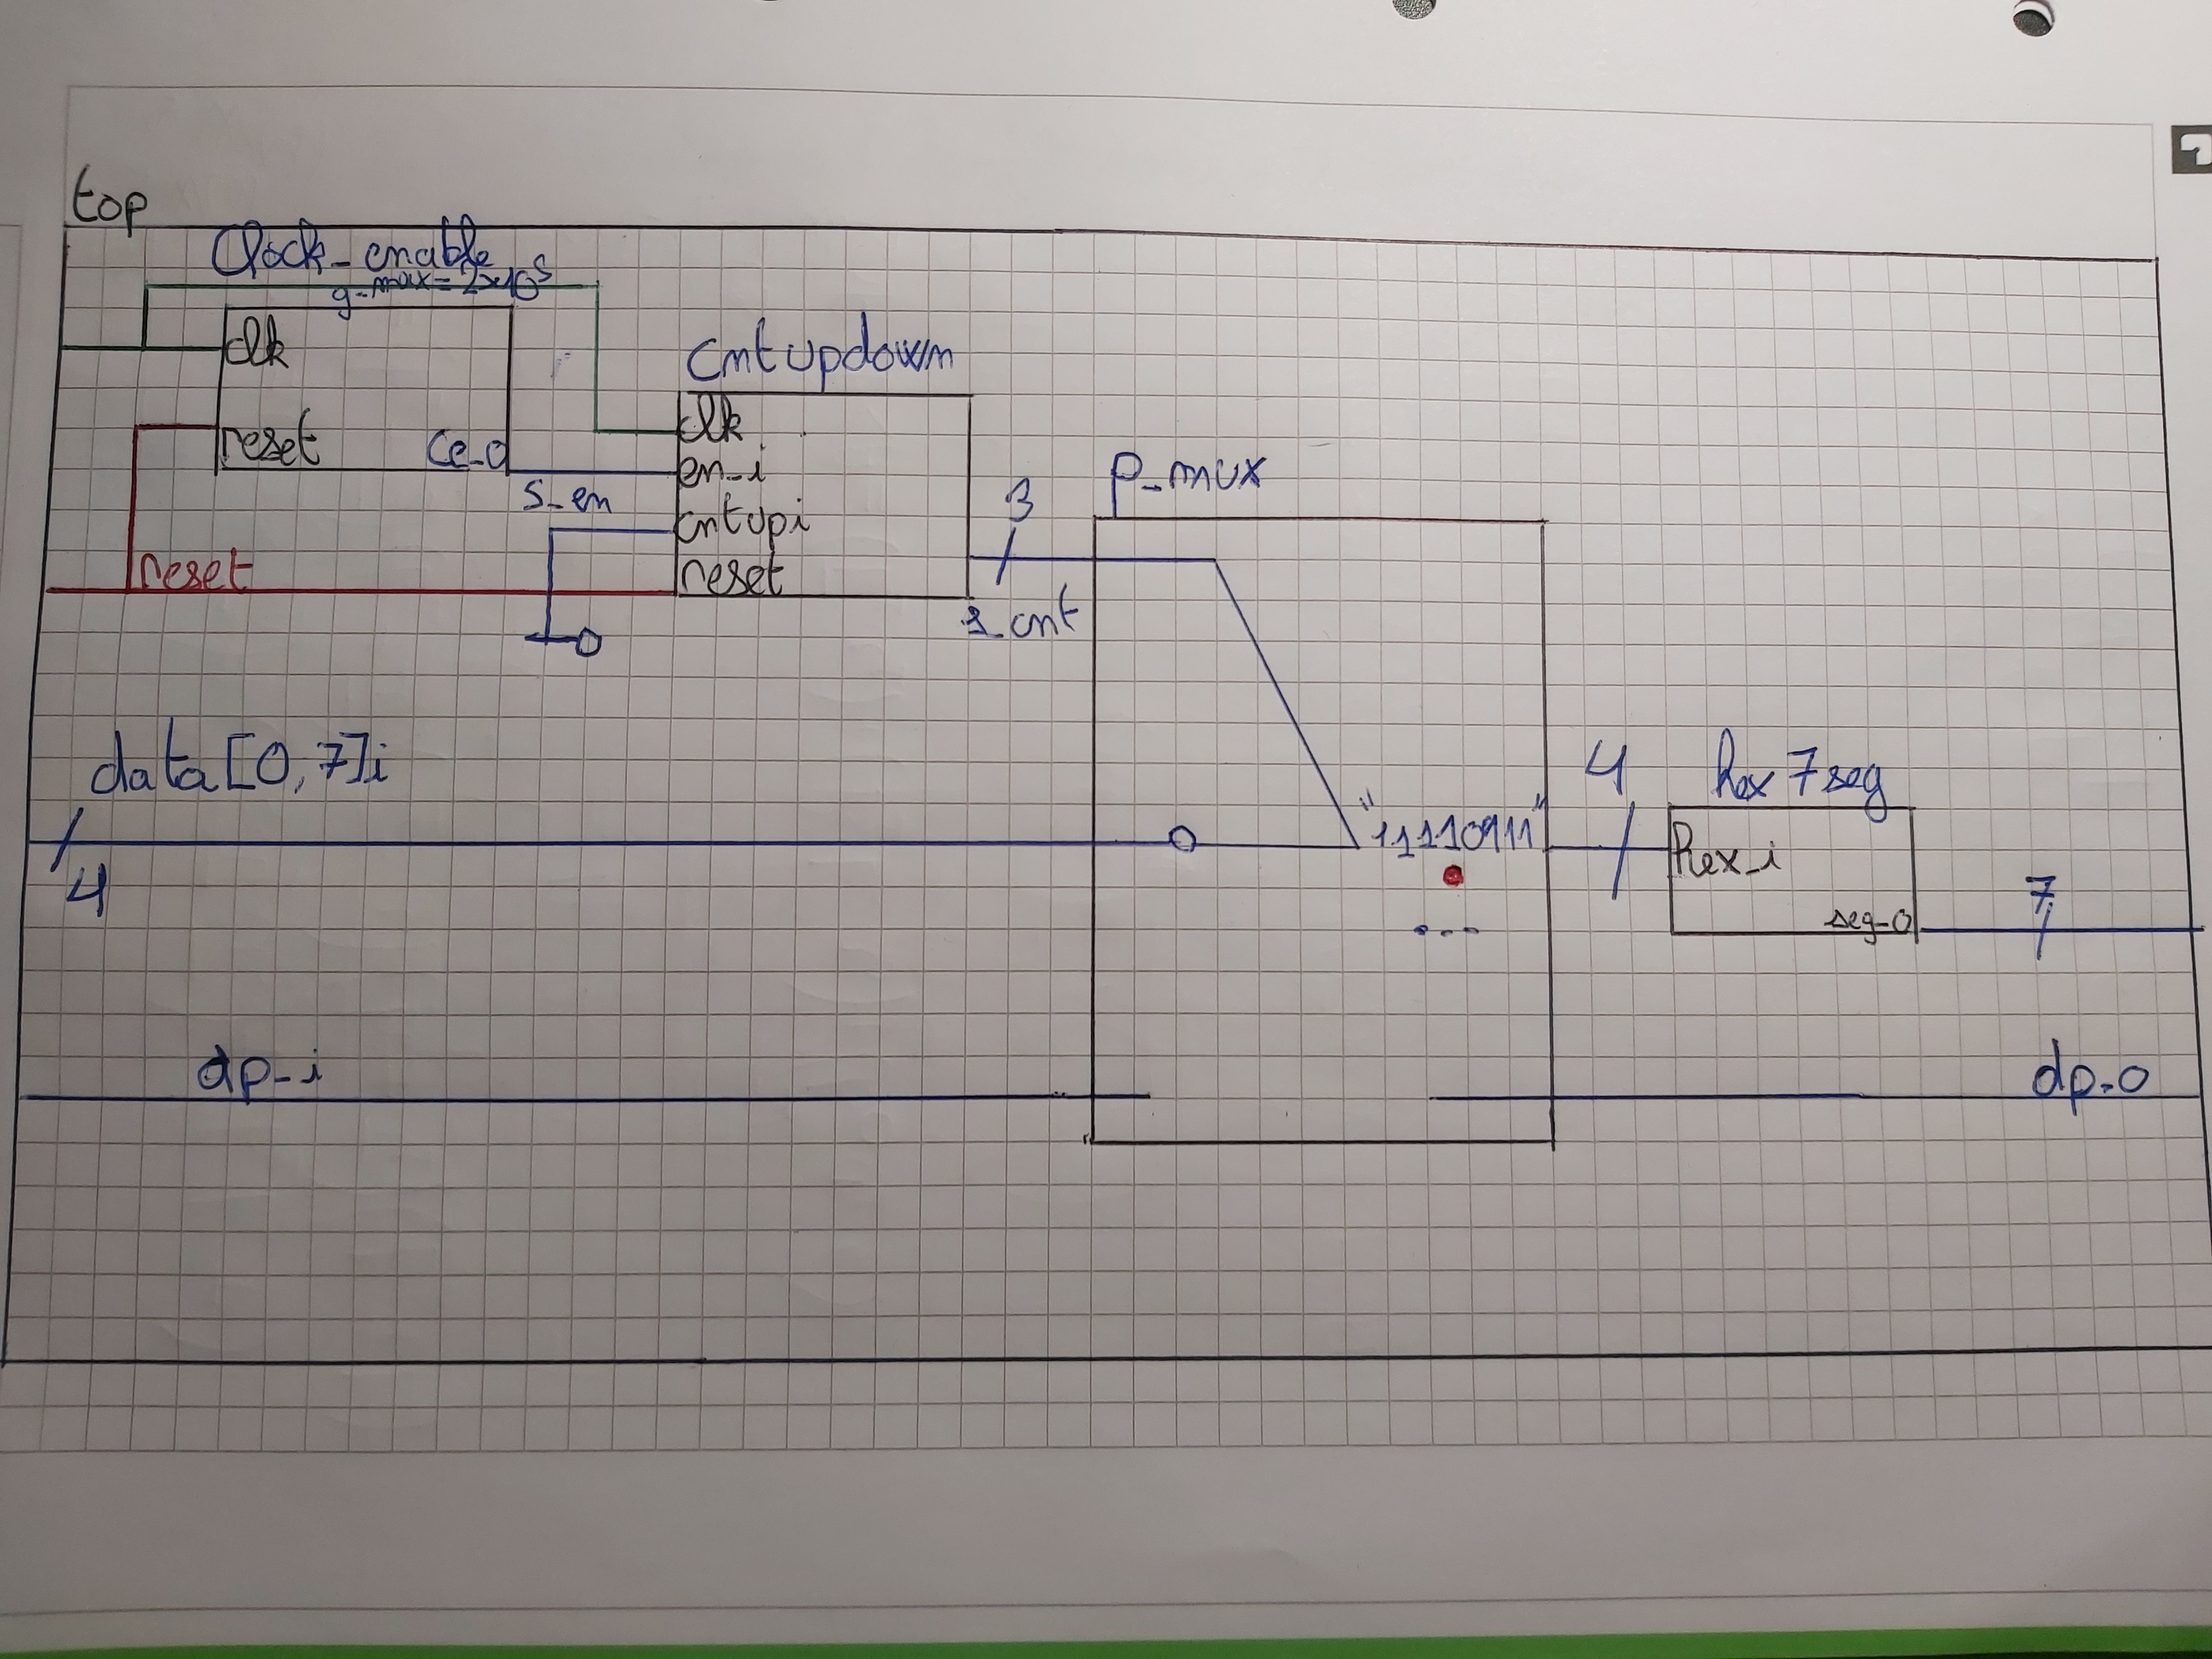 top
Clock-enable
g-max=2×10^5
clk
reset
ce_0
reset
s_en
0
Cntupdown
clk
en_i
cntupi
reset
3
s_cnt
p_mux
data[0,7]i
4
"1110111"
4
hex7seg
hex_i
seg-0
7
dp-i
dp-0